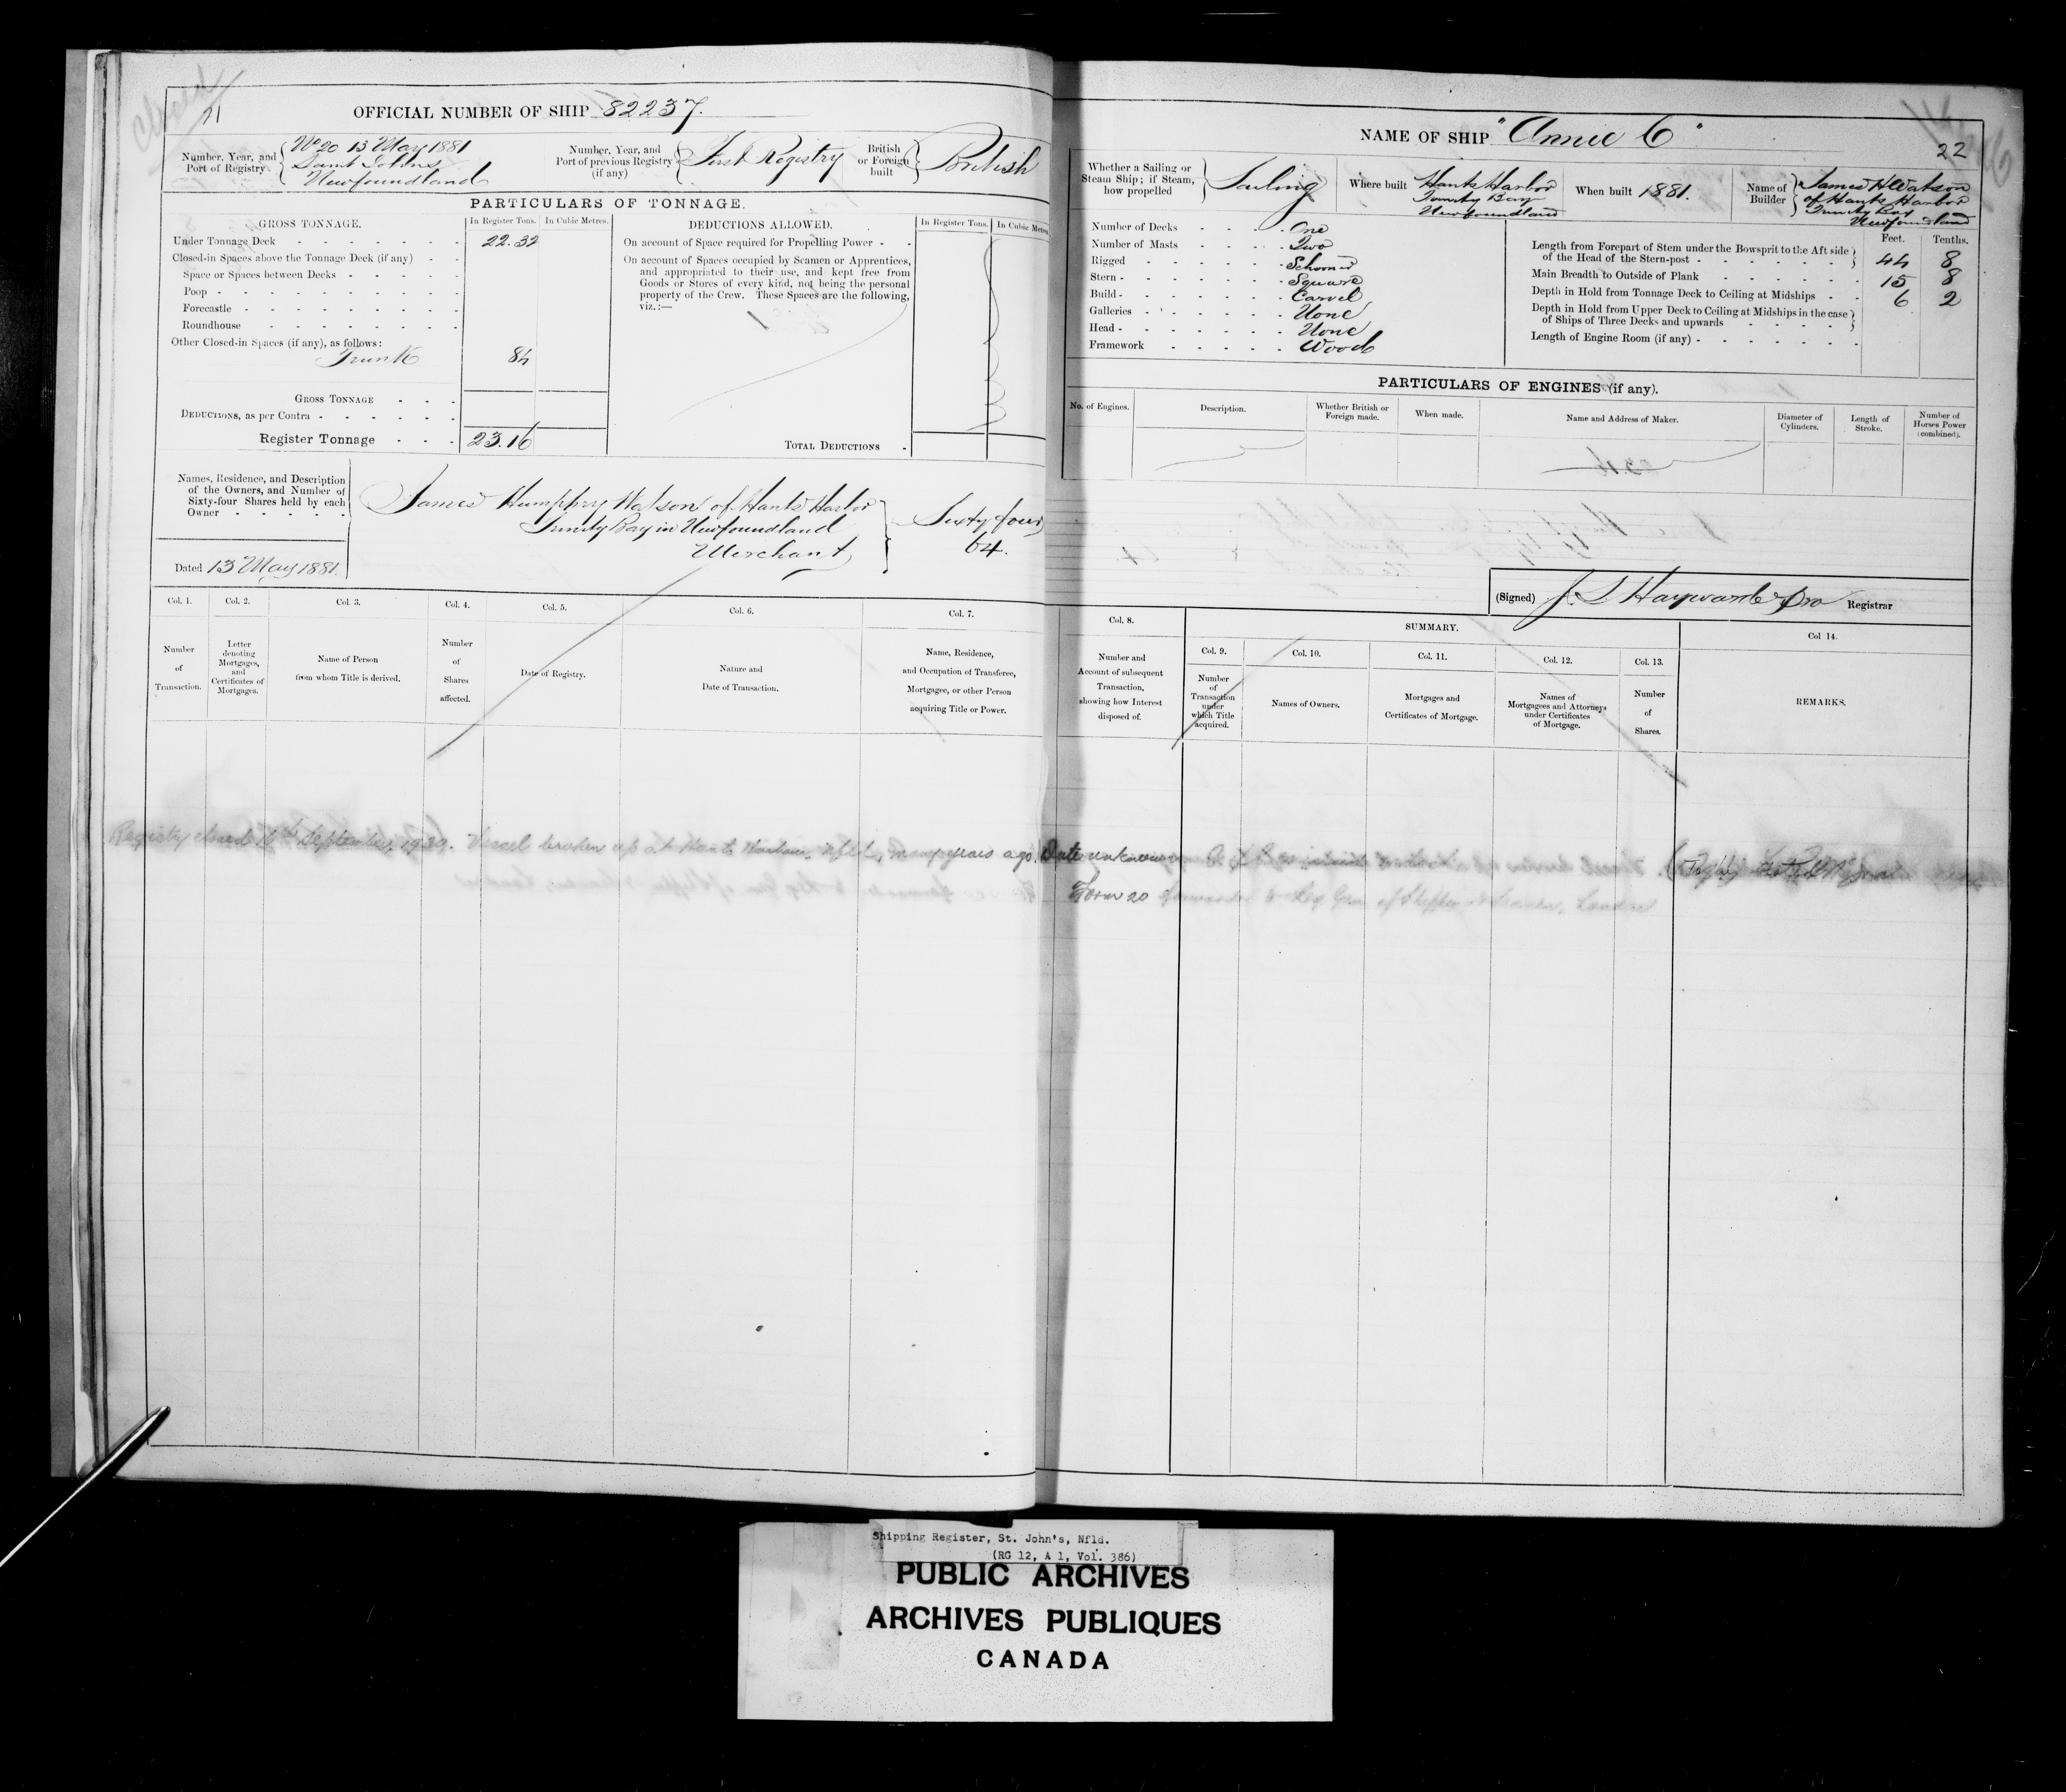 Closed
21
OFFICIAL NUMBER OF SHIP 82237.
Number, Year, and Port of Registry
No 20 13 May 1881
Saint Johns
Newfoundland
Number, Year, and Port of previous Registry (if any)
First Registry
British or Foreign built
British
PARTICULARS OF TONNAGE.
GROSS TONNAGE.
In Register Tons.
In Cubic Metres.
Under Tonnage Deck 22.32
Closed-in Spaces above the Tonnage Deck (if any)
Space or Spaces between Decks
Poop
Forecastle
Roundhouse
Other Closed-in Spaces (if any), as follows:
Trunk 84
GROSS TONNAGE
DEDUCTIONS, as per Contra
Register Tonnage 23.16
DEDUCTIONS ALLOWED.
In Register Tons.
In Cubic Metres
On account of Space required for Propelling Power
On account of Spaces occupied by Seamen or Apprentices,
and appropriated to their use, and kept free from
Goods or Stores of every kind, not being the personal
property of the Crew. These Spaces are the following,
viz.:—
TOTAL DEDUCTIONS
Names, Residence, and Description
of the Owners, and Number of
Sixty-four Shares held by each
Owner
James Humphry Watson of Hants Harbor
Trinity Bay in Newfoundland
Merchant
Sixty four
64.
Dated 13 May 1881.
Col. 1.
Number of Transaction.
Col. 2.
Letter denoting Mortgages, and Certificates of Mortgages.
Col. 3.
Name of Person from whom Title is derived.
Col. 4.
Number of Shares affected.
Col. 5.
Date of Registry.
Col. 6.
Nature and Date of Transaction.
Col. 7.
Name, Residence, and Occupation of Transferee, Mortgagee, or other Person acquiring Title or Power.
NAME OF SHIP "Annie C"
22
Whether a Sailing or Steam Ship; if Steam, how propelled
Sailing
Where built
Hants Harbor
Trinity Bay
Newfoundland
When built 1881.
Name of Builder
James H Watson
of Hants Harbor
Trinity Bay
Newfoundland
Number of Decks One
Number of Masts Two
Rigged Schooner
Stern Square
Build Carvel
Galleries None
Head None
Framework Wood
Feet. Tenths.
Length from Forepart of Stem under the Bowsprit to the Aft side
of the Head of the Stern-post 44 8
Main Breadth to Outside of Plank 15 8
Depth in Hold from Tonnage Deck to Ceiling at Midships 6 2
Depth in Hold from Upper Deck to Ceiling at Midships in the case
of Ships of Three Decks and upwards
Length of Engine Room (if any)
PARTICULARS OF ENGINES (if any).
No. of Engines.
Description.
Whether British or Foreign made.
When made.
Name and Address of Maker.
Diameter of Cylinders.
Length of Stroke.
Number of Horses Power (combined).
(Signed) J S Hayward Registrar
Col. 8.
Number and Account of subsequent Transaction, showing how Interest disposed of.
SUMMARY.
Col. 9.
Number of Transaction under which Title acquired.
Col. 10.
Names of Owners.
Col. 11.
Mortgages and Certificates of Mortgage.
Col. 12.
Names of Mortgagees and Attorneys under Certificates of Mortgage.
Col. 13.
Number of Shares.
Col 14.
REMARKS.
Registry closed 16th September, 1939. Vessel broken up at Hants Harbour, Nfld, many years ago. Date unknown.
Form 20 forwarded to Reg Gen of Shipping & Seamen, London
Shipping Register, St. John's, Nfld.
(RG 12, A 1, Vol. 386)
PUBLIC ARCHIVES
ARCHIVES PUBLIQUES
CANADA